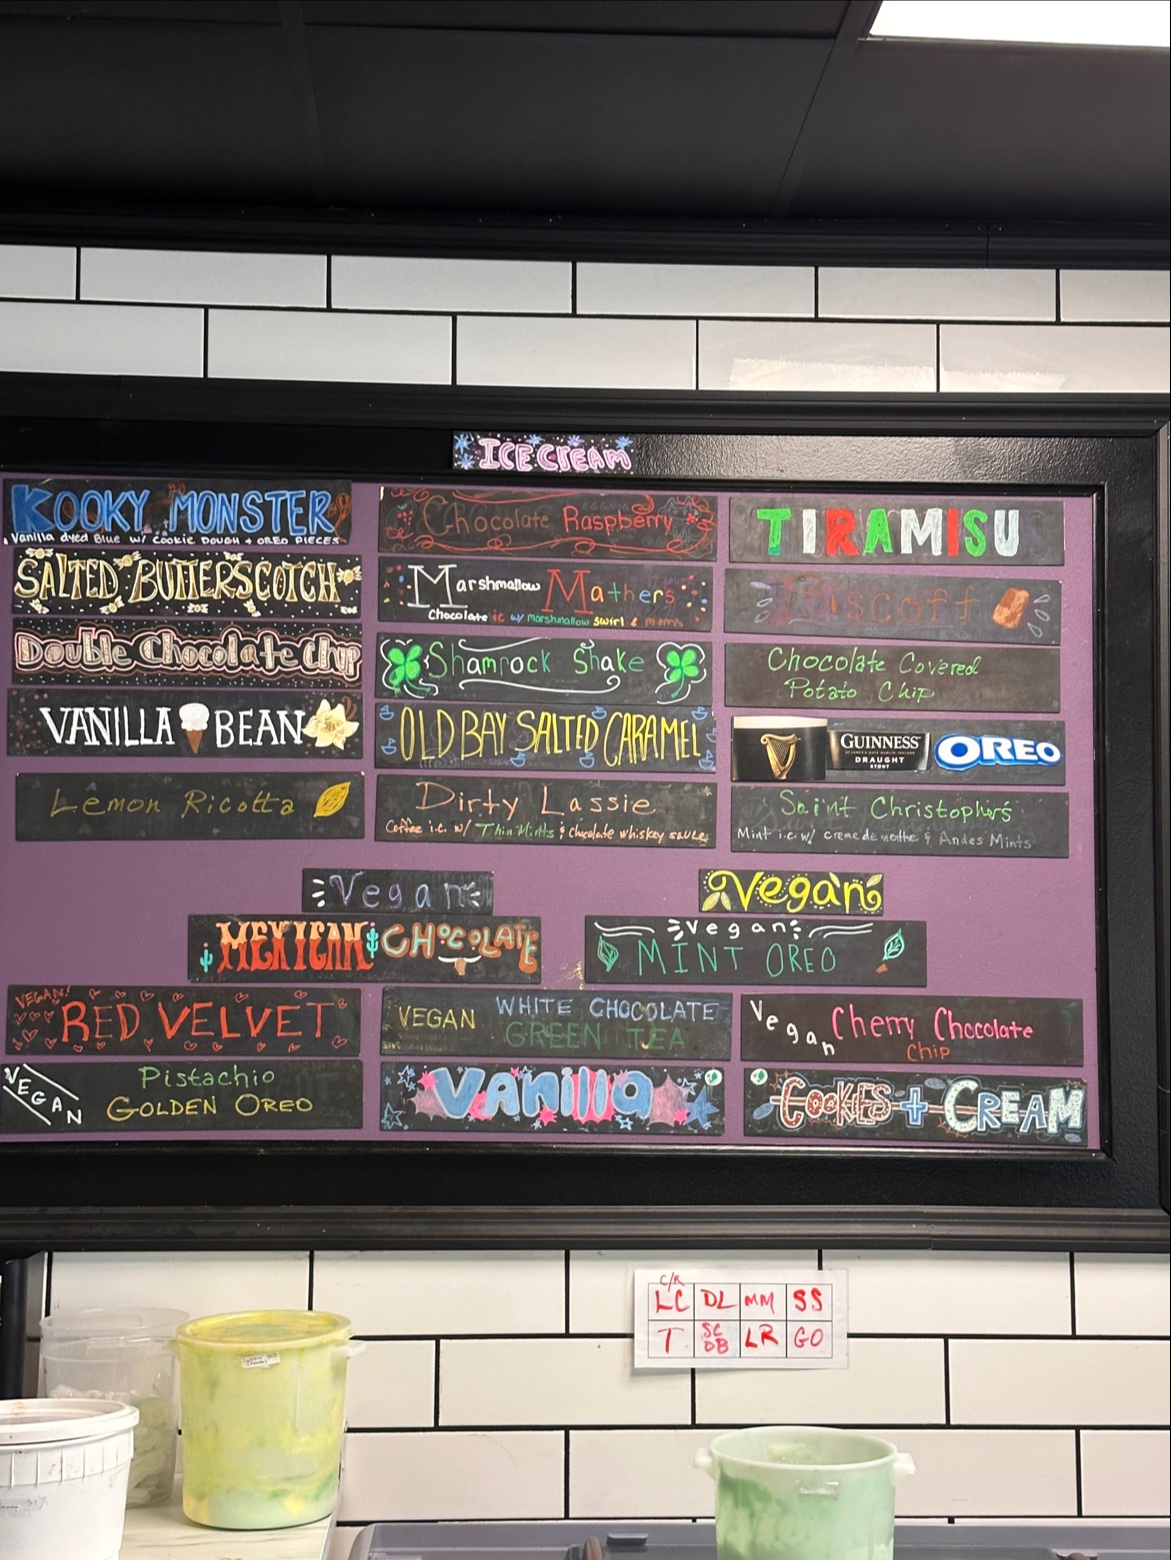 ICE CREAM
KOOKY MONSTER
Vanilla dyed Blue w/ COOKIE DOUGH + OREO PIECES
SALTED BUTTERSCOTCH
Double Chocolate Chip
VANILLA BEAN
Lemon Ricotta
Chocolate Raspberry
Marshmallow Mathers
Chocolate ic w/ marshmallow swirl & m&ms
Shamrock Shake
OLD BAY SALTED CARAMEL
Dirty Lassie
Coffee i.c. w/ Thin Mints & chocolate whiskey sauce
TIRAMISU
Biscoff
Chocolate Covered
Potato Chip
GUINNESS
DRAUGHT
STOUT
OREO
Saint Christopher's
Mint i.c. w/ creme de menthe & Andes Mints
Vegan
Vegan
MEXICAN CHOCOLATE
Vegan
MINT OREO
VEGAN!
RED VELVET
VEGAN WHITE CHOCOLATE
GREEN TEA
Vegan Cherry Chocolate
Chip
VEGAN
Pistachio
GOLDEN OREO
Vanilla
COOKIES + CREAM
C/R
LC DL MM SS
T SC DB LR GO